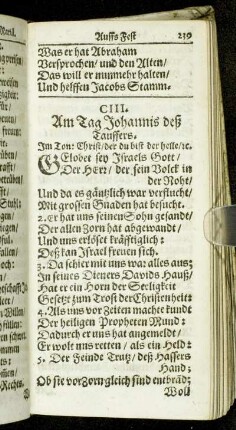 Auffs Fest 239
Was er hat Abraham
Versprochen/ und den Alten/
Das will er nunmehr halten/
Und helffen Jacobs Stamm.
CIII.
Am Tag Johannis deß
Tauffers.
Im Ton: Christ/der du bist der helle/ꝛc.
GElobet sey Israels Gott/
Der HErr/ der sein Volck in
der Noht/
Und da es gäntzlich war verflucht/
Mit grossen Gnaden hat besucht.
2. Er hat uns seinen Sohn gesandt/
Der allen Zorn hat abgewandt/
Und uns erlöset kräfftiglich:
Deß kan Israel freuen sich.
3. Da schier mit uns war alles aus;
In seines Dieners Davids Hauß/
Hat er ein Horn der Seeligkeit
Gesetzt zum Trost der Christenheit:
4. Als uns vor Zeiten machte kundt
Der heiligen Propheten Mund:
Dadurch er uns hat angemeldt/
Er wolt uns retten/ als ein Held:
5. Der Feinde Trutz/ deß Hassers
Hand;
Ob sie vor Zorn gleich sind entbrãd;
Woll